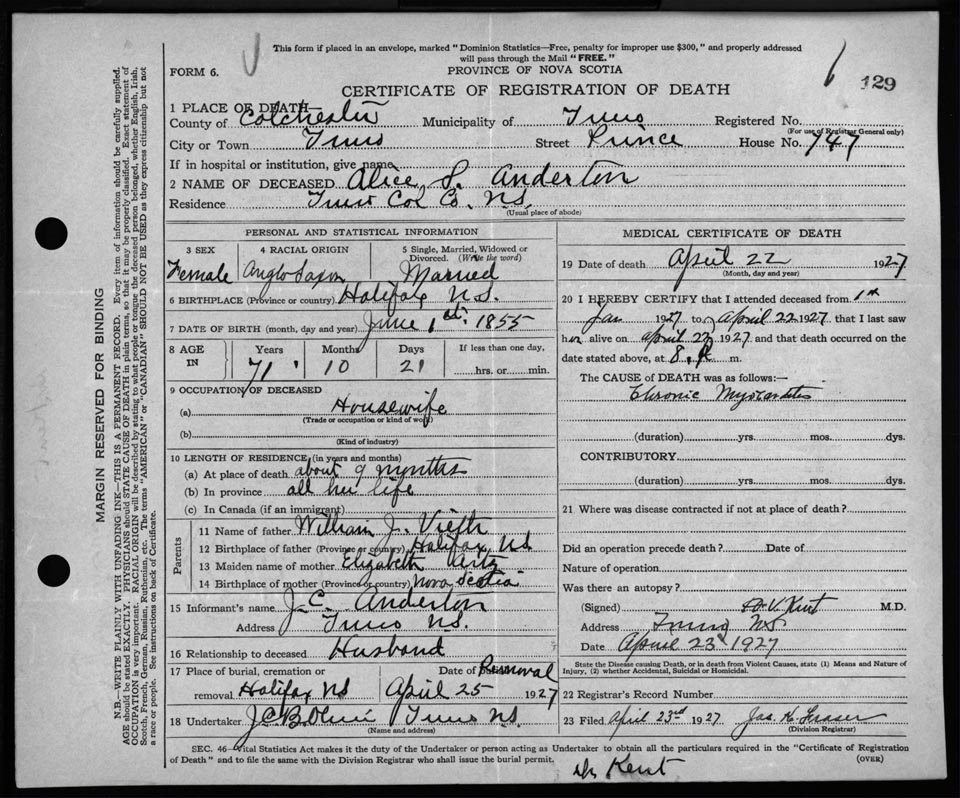 This form if placed in an envelope, marked "Dominion Statistics—Free, penalty for improper use $300," and properly addressed
will pass through the Mail "FREE."
FORM 6.
PROVINCE OF NOVA SCOTIA
129
CERTIFICATE OF REGISTRATION OF DEATH
1 PLACE OF DEATH—
County of Colchester Municipality of Truro Registered No.
(For use of Registrar General only)
City or Town Truro Street Prince House No. 747
If in hospital or institution, give name
2 NAME OF DECEASED Alice S. Anderton
Residence Truro Col. Co. N.S.
(Usual place of abode)
PERSONAL AND STATISTICAL INFORMATION
3 SEX 4 RACIAL ORIGIN 5 Single, Married, Widowed or
Divorced. (Write the word)
Female Anglo Saxon Married
6 BIRTHPLACE (Province or country) Halifax N.S.
7 DATE OF BIRTH (month, day and year) June 1st. 1855
8 AGE IN Years Months Days If less than one day,
71 10 21 hrs. or min.
9 OCCUPATION OF DECEASED
(a) Housewife
(Trade or occupation or kind of work)
(b)
(Kind of industry)
10 LENGTH OF RESIDENCE (in years and months)
(a) At place of death about 9 months
(b) In province all her life
(c) In Canada (if an immigrant)
Parents
11 Name of father William J. Vieth
12 Birthplace of father (Province or country) Halifax NS
13 Maiden name of mother Elizabeth
14 Birthplace of mother (Province or country) Nova Scotia
15 Informant's name J. C. Anderton
Address Truro N.S.
16 Relationship to deceased Husband
17 Place of burial, cremation or Date of Removal
removal Halifax NS April 25 1927
18 Undertaker Truro NS.
(Name and address)
MEDICAL CERTIFICATE OF DEATH
19 Date of death April 22 1927
(Month, day and year)
20 I HEREBY CERTIFY that I attended deceased from 1st
Jan 1927 to April 22 1927 that I last saw
her alive on April 22 1927 and that death occurred on the
date stated above, at 8. P. m.
The CAUSE of DEATH was as follows:—
Chronic Myocarditis
(duration) yrs. mos. dys.
CONTRIBUTORY
(duration) yrs. mos. dys.
21 Where was disease contracted if not at place of death?
Did an operation precede death? Date of
Nature of operation
Was there an autopsy?
(Signed) H.V. Kent M.D.
Address Truro NS
Date April 23 1927
State the Disease causing Death, or in death from Violent Causes, state (1) Means and Nature of
Injury, (2) whether Accidental, Suicidal or Homicidal.
22 Registrar's Record Number
23 Filed April 23rd 1927. Jas. K. Fraser
(Division Registrar)
SEC. 46—Vital Statistics Act makes it the duty of the Undertaker or person acting as Undertaker to obtain all the particulars required in the "Certificate of Registration
of Death" and to file the same with the Division Registrar who shall issue the burial permit.
(OVER)
Dr Kent
MARGIN RESERVED FOR BINDING
N.B.—WRITE PLAINLY WITH UNFADING INK—THIS IS A PERMANENT RECORD. Every item of information should be carefully supplied.
AGE should be stated EXACTLY. PHYSICIANS should STATE CAUSE OF DEATH in plain terms, so that it may be properly classified. Exact statement of
OCCUPATION is very important. RACIAL ORIGIN will be described by stating to what people or tongue the deceased person belonged, whether English, Irish,
Scotch, French, German, Russian, Ruthenian, etc. The terms "AMERICAN" or "CANADIAN" SHOULD NOT BE USED as they express citizenship but not
a race or people. See instructions on back of Certificate.